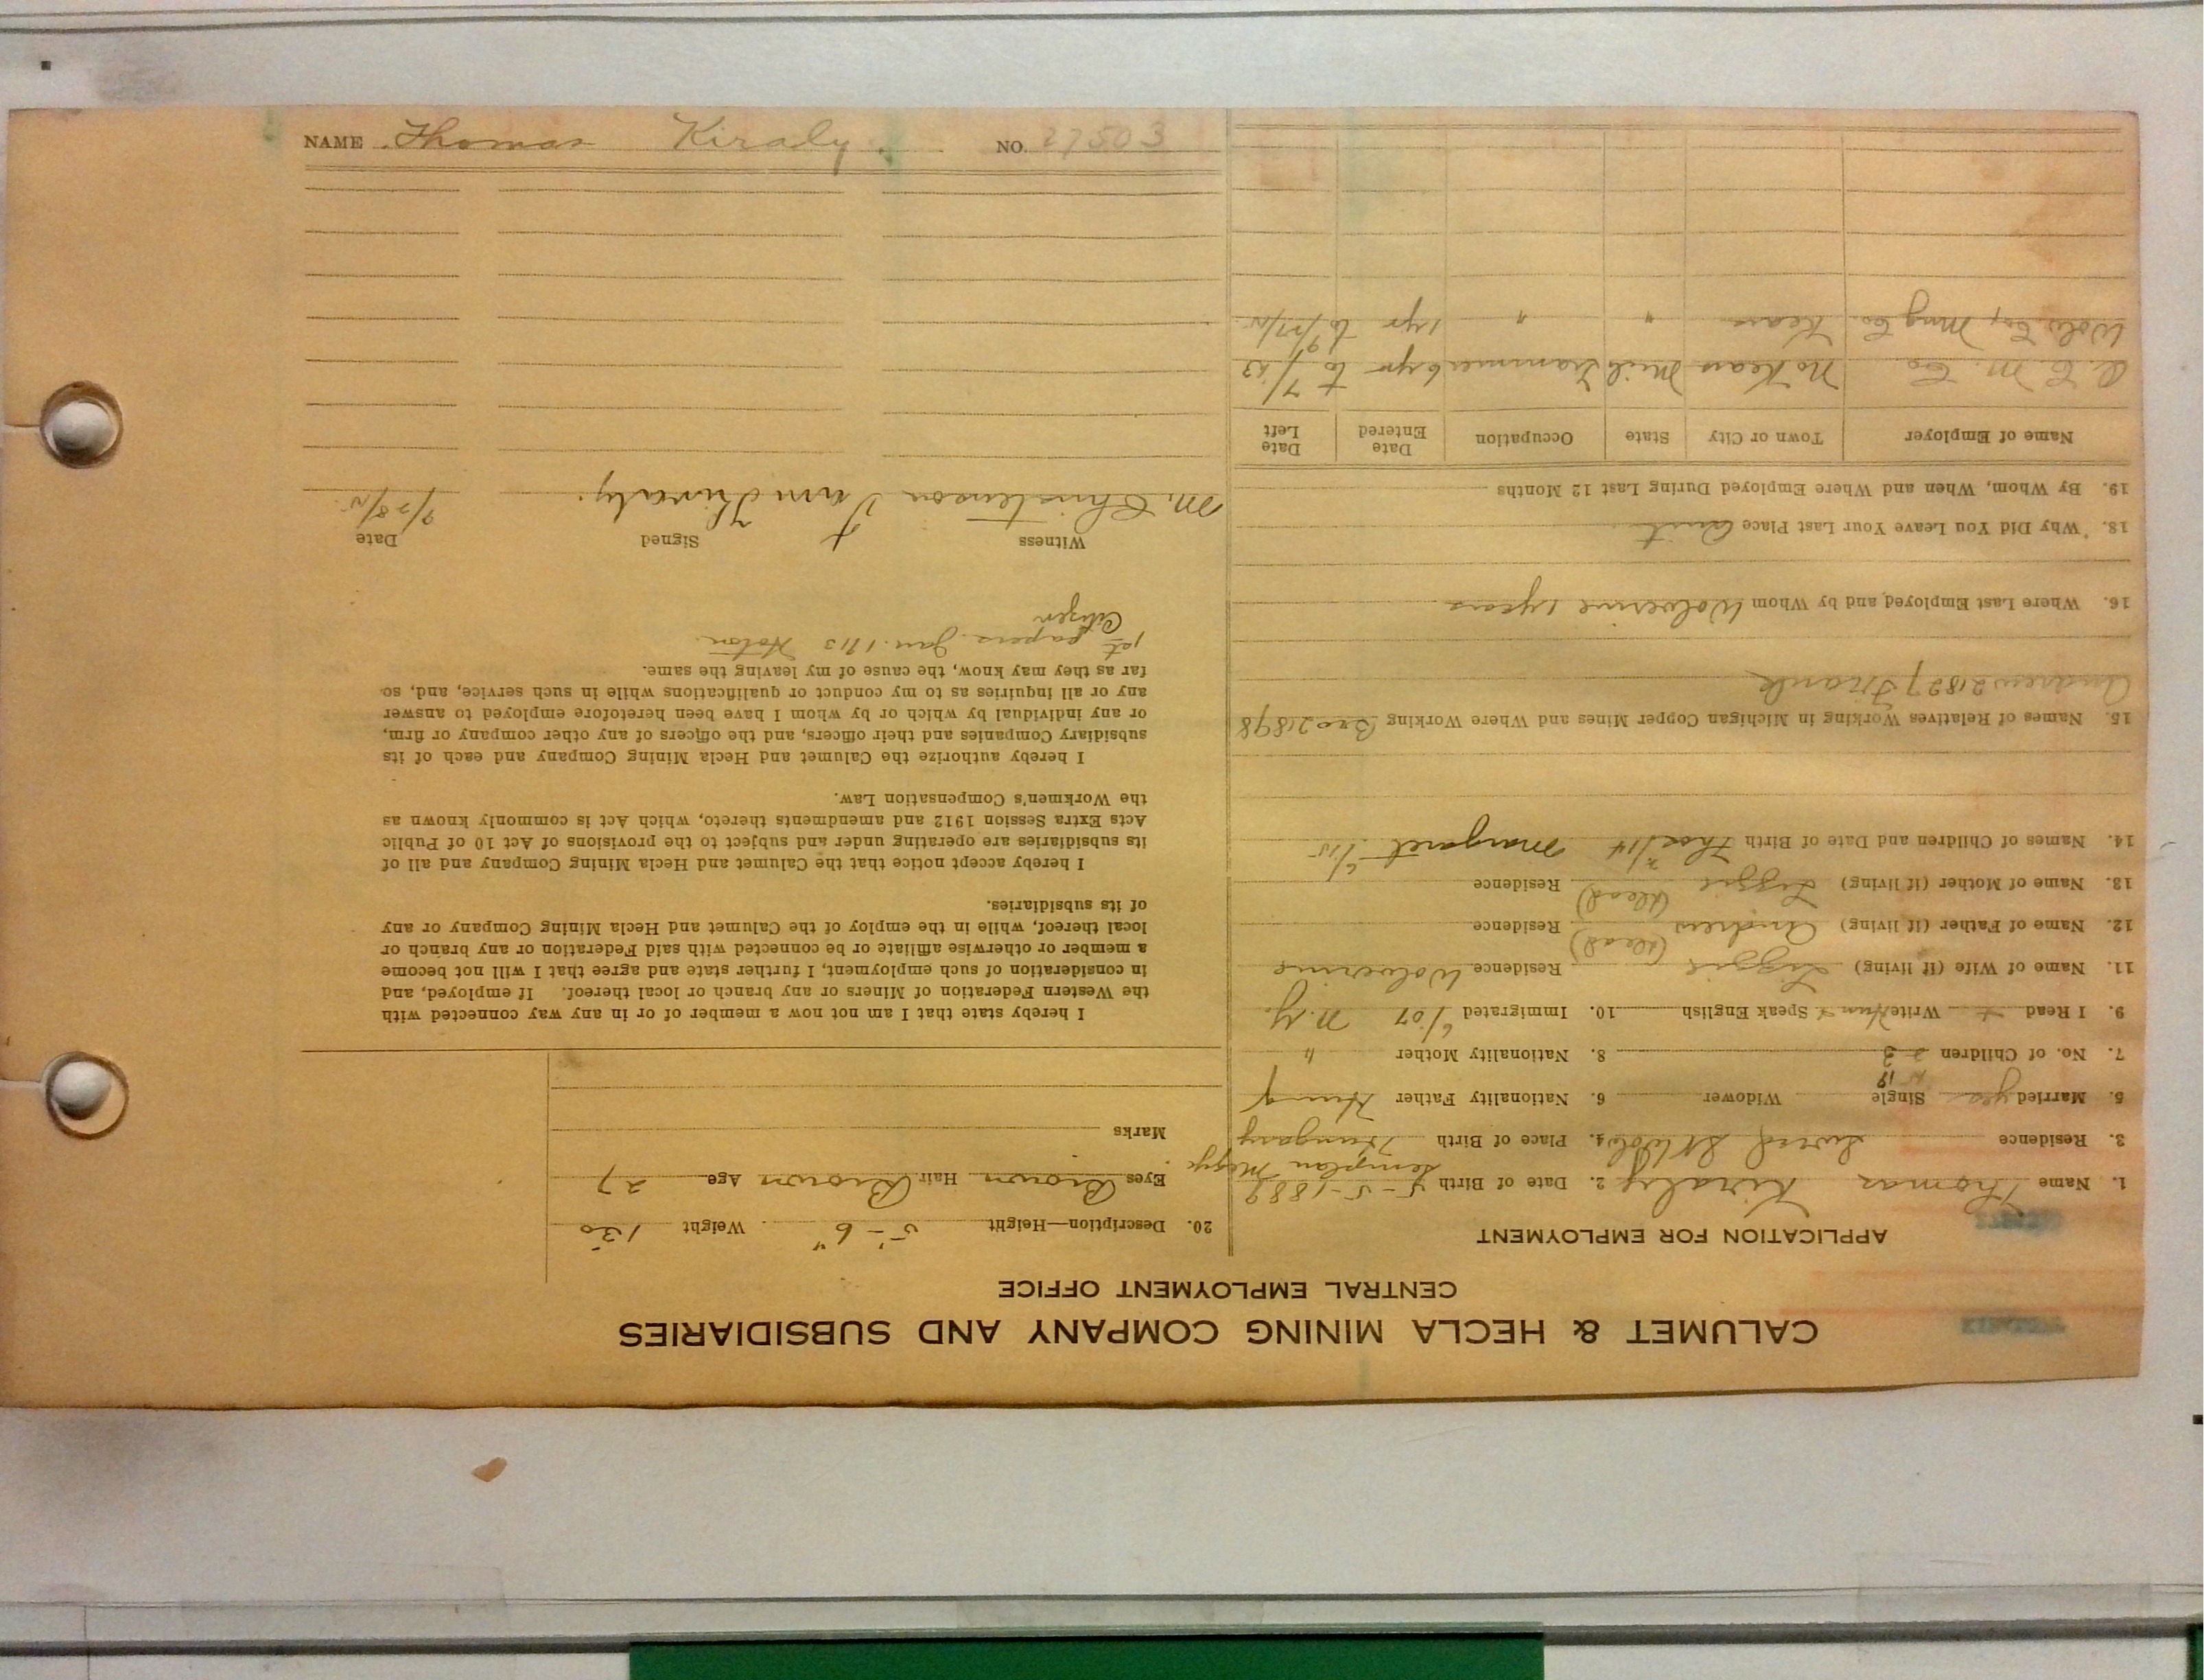 CALUMET & HECLA MINING COMPANY AND SUBSIDIARIES
CENTRAL EMPLOYMENT OFFICE
APPLICATION FOR EMPLOYMENT
1. Name Thomas Kiraly 2. Date of Birth 5-5-1889
3. Residence St Wolv 4. Place of Birth Hungary
5. Married yes Single Widower 6. Nationality Father Hung
7. No. of Children 8. Nationality Mother "
9. I Read Write Hun Speak English 10. Immigrated 6/07 N.Y.
11. Name of Wife (if living) Lizzie Residence Wolverine
12. Name of Father (if living) Andrew (dead) Residence
13. Name of Mother (if living) Lizzie (dead) Residence
14. Names of Children and Date of Birth Thos /14 Margaret 6/15
15. Names of Relatives Working in Michigan Copper Mines and Where Working Bro 21898
Andrew 21827 Frank
16. Where Last Employed, and by Whom Wolverine 1 years
18. Why Did You Leave Your Last Place Quit
19. By Whom, When and Where Employed During Last 12 Months
Name of Employer Town or City State Occupation Date Entered Date Left
O. C. M. Co No Kear Mich Trammer 6 yr to 7/13
Wolv. Co, Mng Co. Kear " " 1 yr to 9/27/15
20. Description—Height 5'-6" Weight 130
Eyes Brown Hair Brown Age 27
Marks
I hereby state that I am not now a member of or in any way connected with
the Western Federation of Miners or any branch or local thereof. If employed, and
in consideration of such employment, I further state and agree that I will not become
a member or otherwise affiliate or be connected with said Federation or any branch or
local thereof, while in the employ of the Calumet and Hecla Mining Company or any
of its subsidiaries.
I hereby accept notice that the Calumet and Hecla Mining Company and all of
its subsidiaries are operating under and subject to the provisions of Act 10 of Public
Acts Extra Session 1912 and amendments thereto, which Act is commonly known as
the Workmen's Compensation Law.
I hereby authorize the Calumet and Hecla Mining Company and each of its
subsidiary Companies and their officers, and the officers of any other company or firm,
or any individual by which or by whom I have been heretofore employed to answer
any or all inquiries as to my conduct or qualifications while in such service, and, so
far as they may know, the cause of my leaving the same.
1st papers Jan. 1913 Hoton.
Citizen
Witness Signed Date
M. Christenson 9/28/15
NAME Thomas Kiraly NO. 27503